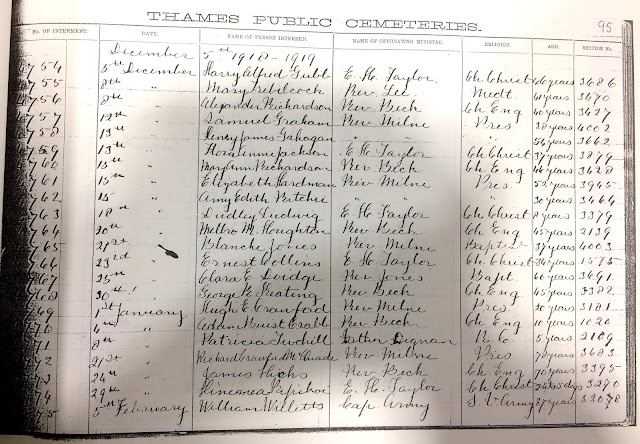 THAMES PUBLIC CEMETERIES. 95
No. OF INTERMENT. DATE. NAME OF PERSON INTERRED. NAME OF OFFICIATING MINISTER. RELIGION. AGE. SECTION No.
December 5th 1918-1919
4754 5th December Harry Alfred Tubb E. H. Taylor Ch Christ 46 years 3686
755 8th " Mary Trebilcock Rev Lee Meth 41 years 3670
756 8th " Alexander Richardson Rev Beck Ch Eng 40 years 3627
757 12th " Samuel Graham Rev Milne Pres 38 years 4002
758 13th " Henry James Gahagan " " 56 years 3662
759 13th " Jackson E. H. Taylor Ch Christ 37 years 3879
760 15th " Mary Ann Richardson Rev Beck Ch Eng 46 years 3628
761 15th " Elizabeth Hardman Rev Milne Pres 52 years 3945
762 15 " Amy Edith Ritchie " " 30 years 3464
763 18th " Dudley Ludwig E. H. Taylor Ch Christ 8 years 3379
764 20th " M. Houghton Rev Beck Ch Eng 45 years 2139
765 21st " Blanche Jones Rev Milne Baptist 37 years 4003
66 23rd " Ernest Collins E. H. Taylor Ch Christ 34 years 1575
67 25th " Clara E. Doidge Rev Jones Bapt 40 years 3691
68 30th " George K. Keating Rev Beck Ch Eng 45 years 3382
69 1st January Hugh E Crawford Rev Milne Pres 20 years 3181
70 4th " Adam Buist Crabb Rev Beck Ch Eng 10 years 1020
71 8th " Patricia Father Dignan R. C. 5 years 2109
72 21st " Richard Crawford McQuade Rev Milne Pres 70 years 3683
73 24th " James Hicks Rev Beck Ch Eng 70 years 3395
74 29th " E. H. Taylor Ch Christ 3290
75 5th February William Willetts Cap Army S. Army 27 years 3207